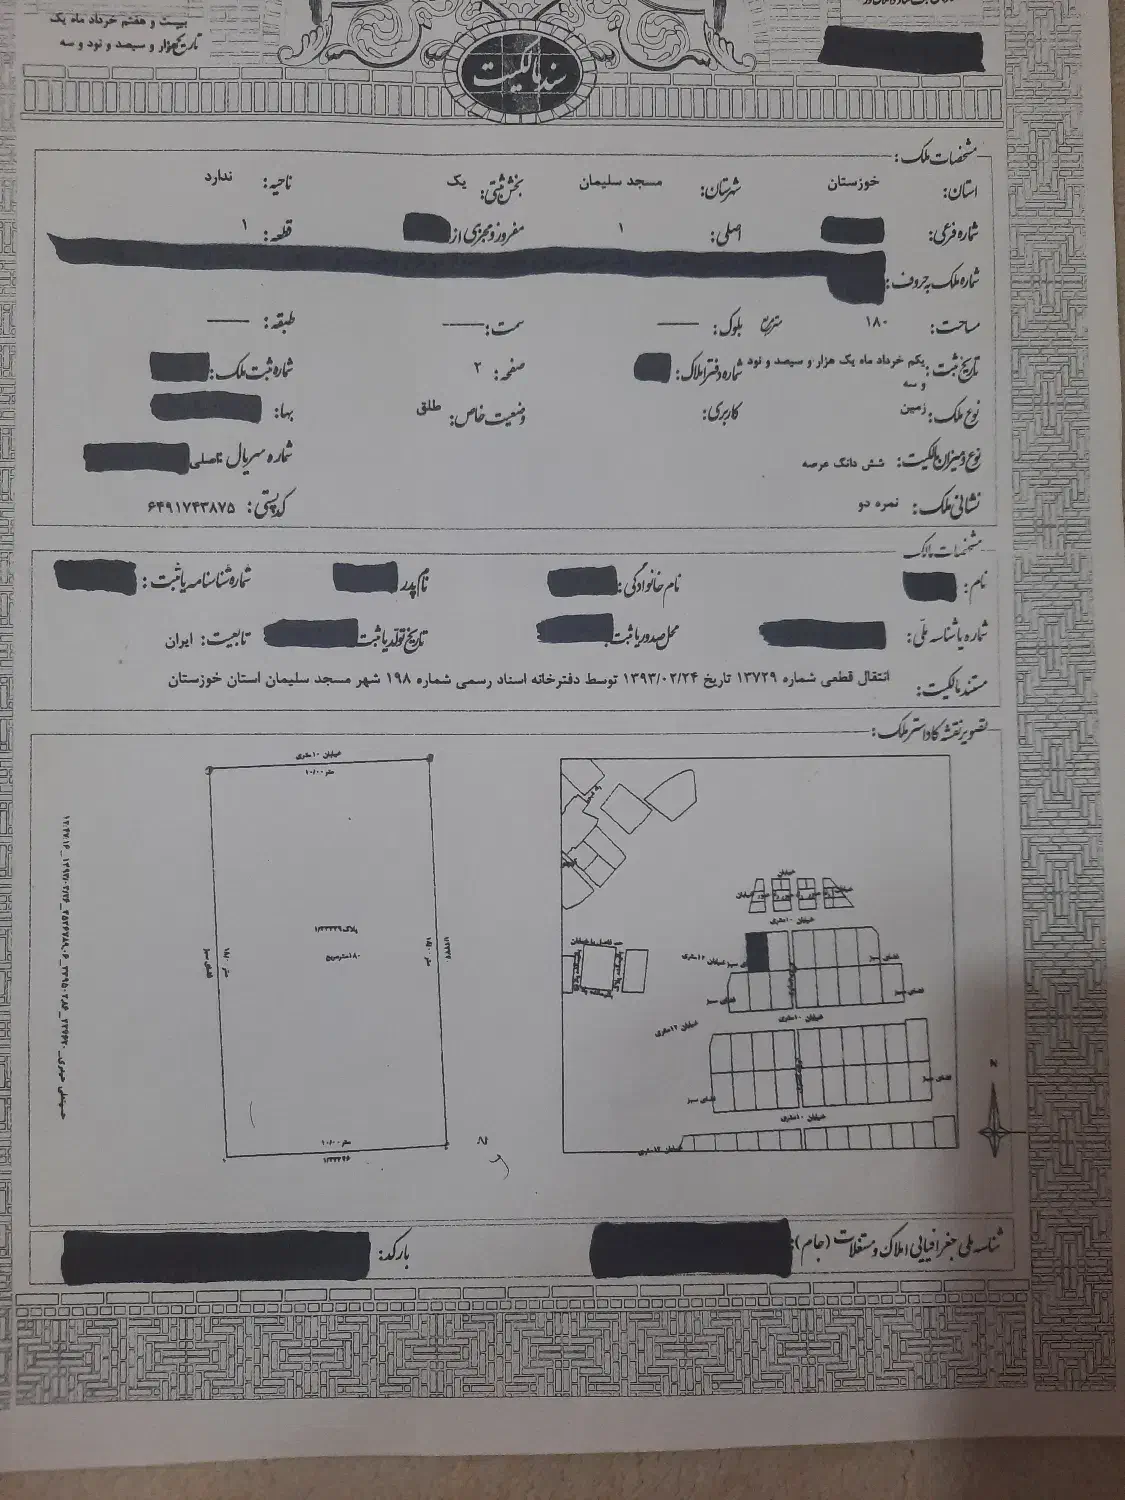 بیست و هفتم خرداد ماه یک
تاریخ: هزار و سیصد و نود و سه
سند مالکیت
مشخصات ملک:
استان: خوزستان شهرستان: مسجد سلیمان بخش ثبتی: یک ناحیه: ندارد
شماره فرعی: اصلی: ۱ مفروز و مجزی از قطعه: ۱
شماره ملک به حروف:
مساحت: ۱۸۰ مترمربع بلوک: —— سمت: —— طبقه: ——
تاریخ ثبت: یکم خرداد ماه یک هزار و سیصد و نود و سه شماره دفتر املاک: صفحه: ۲ شماره ثبت ملک:
نوع ملک: زمین کاربری: وضعیت خاص: طلق بها:
نوع و میزان مالکیت: شش دانگ عرصه شماره سریال اصلی
نشانی ملک: نمره دو کدپستی: ۶۴۹۱۷۴۳۸۷۵
مشخصات مالک
نام: نام خانوادگی: نام پدر شماره شناسنامه یا ثبت:
شماره یا شناسه ملی: محل صدور یا ثبت تاریخ تولد یا ثبت تابعیت: ایران
مستند مالکیت: انتقال قطعی شماره ۱۳۷۲۹ تاریخ ۱۳۹۳/۰۲/۲۴ توسط دفترخانه اسناد رسمی شماره ۱۹۸ شهر مسجد سلیمان استان خوزستان
تصویر نقشه کاداستر ملک:
خیابان ۱۰ متری
۱۰/۰۰ متر
۱۸۰ مترمربع
فضای سبز
۱۰/۰۰ متر
خیابان
خیابان
خیابان ۱۰ متری
فضای سبز
فضای سبز
فضای سبز
خیابان ۱۰ متری
خیابان ۱۲ متری
فضای سبز
فضای سبز
خیابان ۱۰ متری
خیابان ۱۲ متری
N
شناسه ملی جغرافیایی املاک و مستغلات (جام): بارکد: